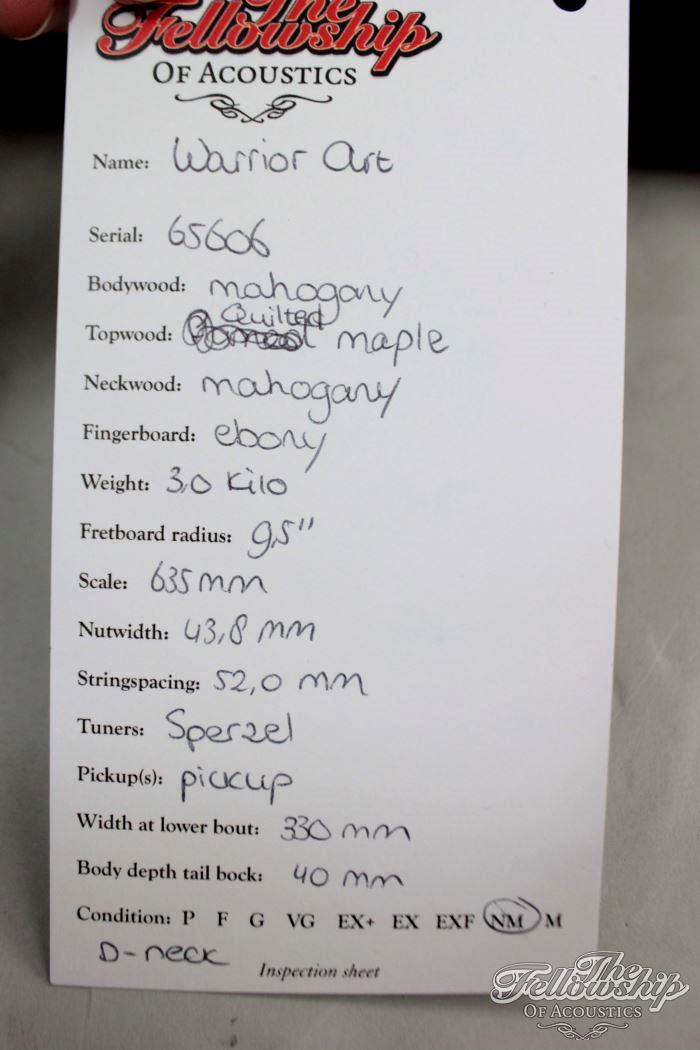 The
Fellowship
OF ACOUSTICS
Name: Warrior Art
Serial: 65606
Bodywood: mahogany
Topwood: Quilted maple
Neckwood: mahogany
Fingerboard: ebony
Weight: 3,0 kilo
Fretboard radius: 9,5"
Scale: 635 mm
Nutwidth: 43,8 mm
Stringspacing: 52,0 mm
Tuners: Sperzel
Pickup(s): pickup
Width at lower bout: 330 mm
Body depth tail bock: 40 mm
Condition: P F G VG EX+ EX EXF NM M
D-neck
Inspection sheet
The
Fellowship
OF ACOUSTICS